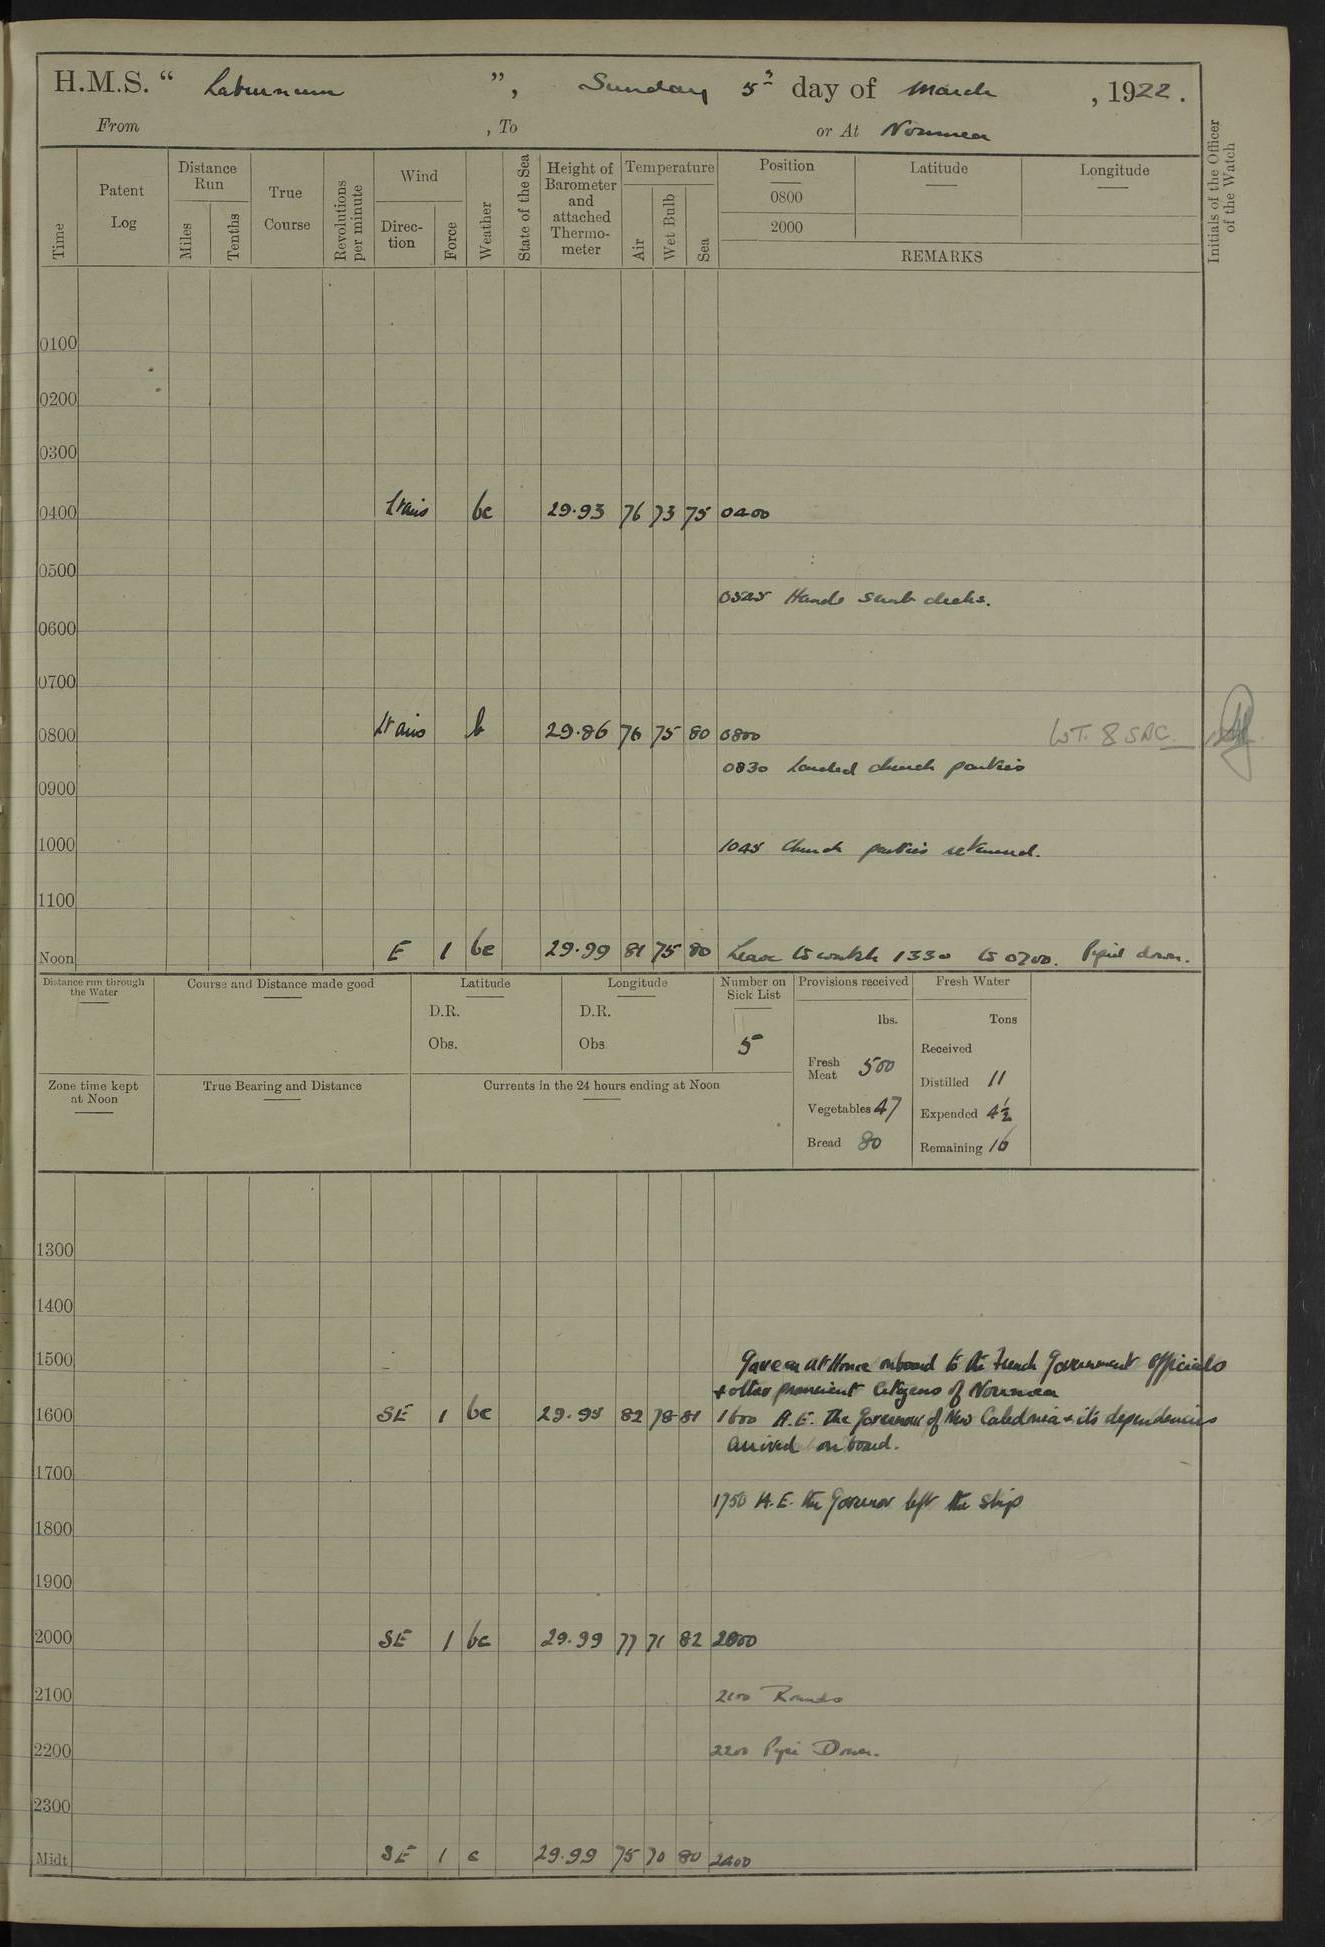 H.M.S. “ Laburnum ”, Sunday 5th day of March, 1922.
From , To or At Noumea
Time
Patent Log
Distance Run
Miles
Tenths
True Course
Revolutions per minute
Wind
Direc-tion
Force
Weather
State of the Sea
Height of Barometer and attached Thermo-meter
Temperature
Air
Wet Bulb
Sea
Position
0800
2000
Latitude
Longitude
REMARKS
Initials of the Officer of the Watch
0100
0200
0300
0400 Lt airs bc 29.93 76 73 75 0400
0500
0525 Hands scrub decks.
0600
0700
0800 Lt airs b 29.86 76 75 80 0800
0830 Landed church parties
0900
1000
1045 Church parties returned.
1100
Noon E 1 bc 29.99 81 75 80 Leave to watch 1330 to 0700. Pipe down.
Distance run through the Water
Course and Distance made good
Latitude
D.R.
Obs.
Longitude
D.R.
Obs
Number on Sick List
5
Provisions received
lbs.
Fresh Meat 500
Vegetables 47
Bread 80
Fresh Water
Tons
Received
Distilled 11
Expended 4½
Remaining 16
Zone time kept at Noon
True Bearing and Distance
Currents in the 24 hours ending at Noon
1300
1400
1500
Gave an At Home onboard to the French Government Officials
& other prominent Citizens of Noumea
1600 SE 1 bc 29.95 82 78 81 1600 H.E. the Governor of New Caledonia & its dependencies
arrived on board.
1700
1750 H.E. the Governor left the ship
1800
1900
2000 SE 1 bc 29.99 77 71 82 2000
2100 2100 Rounds
2200 2200 Pipe Down.
2300
Midt SE 1 c 29.99 75 70 80 2400